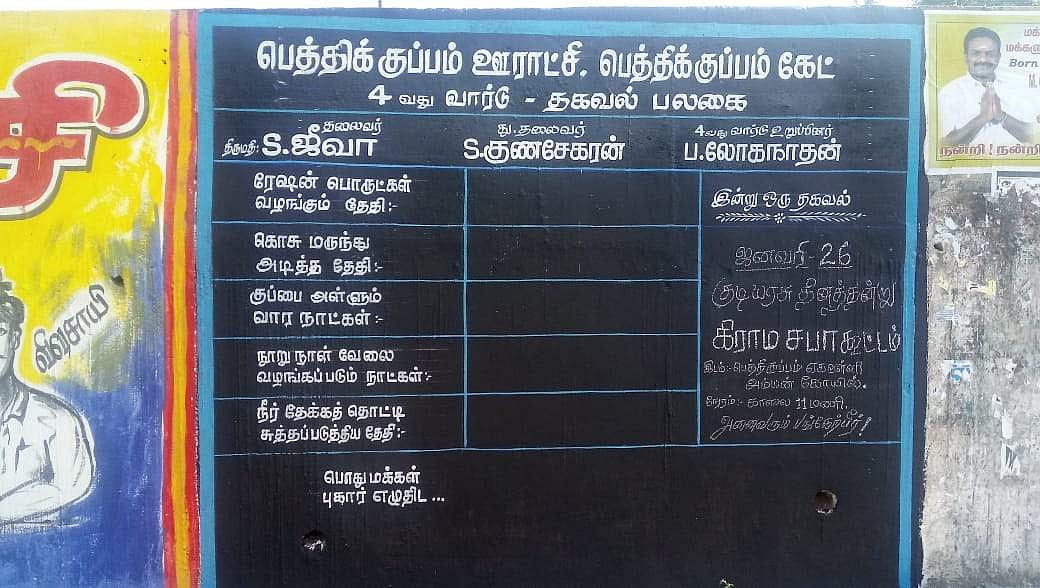 பெத்திக்குப்பம் ஊராட்சி. பெத்திக்குப்பம் கேட்
4 வது வார்டு - தகவல் பலகை
தலைவர்
திருமதி: S.ஜீவா
து.தலைவர்
S.குணசேகரன்
4வது வார்டு உறுப்பினர்
ப.லோகநாதன்
ரேஷன் பொருட்கள்
வழங்கும் தேதி:-
கொசு மருந்து
அடித்த தேதி:-
குப்பை அள்ளும்
வார நாட்கள்:-
நூறு நாள் வேலை
வழங்கப்படும் நாட்கள்:-
நீர் தேக்கத் தொட்டி
சுத்தப்படுத்திய தேதி:-
இன்று ஒரு தகவல்
ஜனவரி - 26
குடியரசு தினத்தன்று
கிராம சபா கூட்டம்
இடம்:- பெத்திகுப்பம்
அம்மன் கோயில்.
நேரம்:- காலை 11 மணி.
அனைவரும் பங்கேற்பீர்!
பொது மக்கள்
புகார் எழுதிட ...
விவசாயி
சி
Born
நன்றி! நன்றி